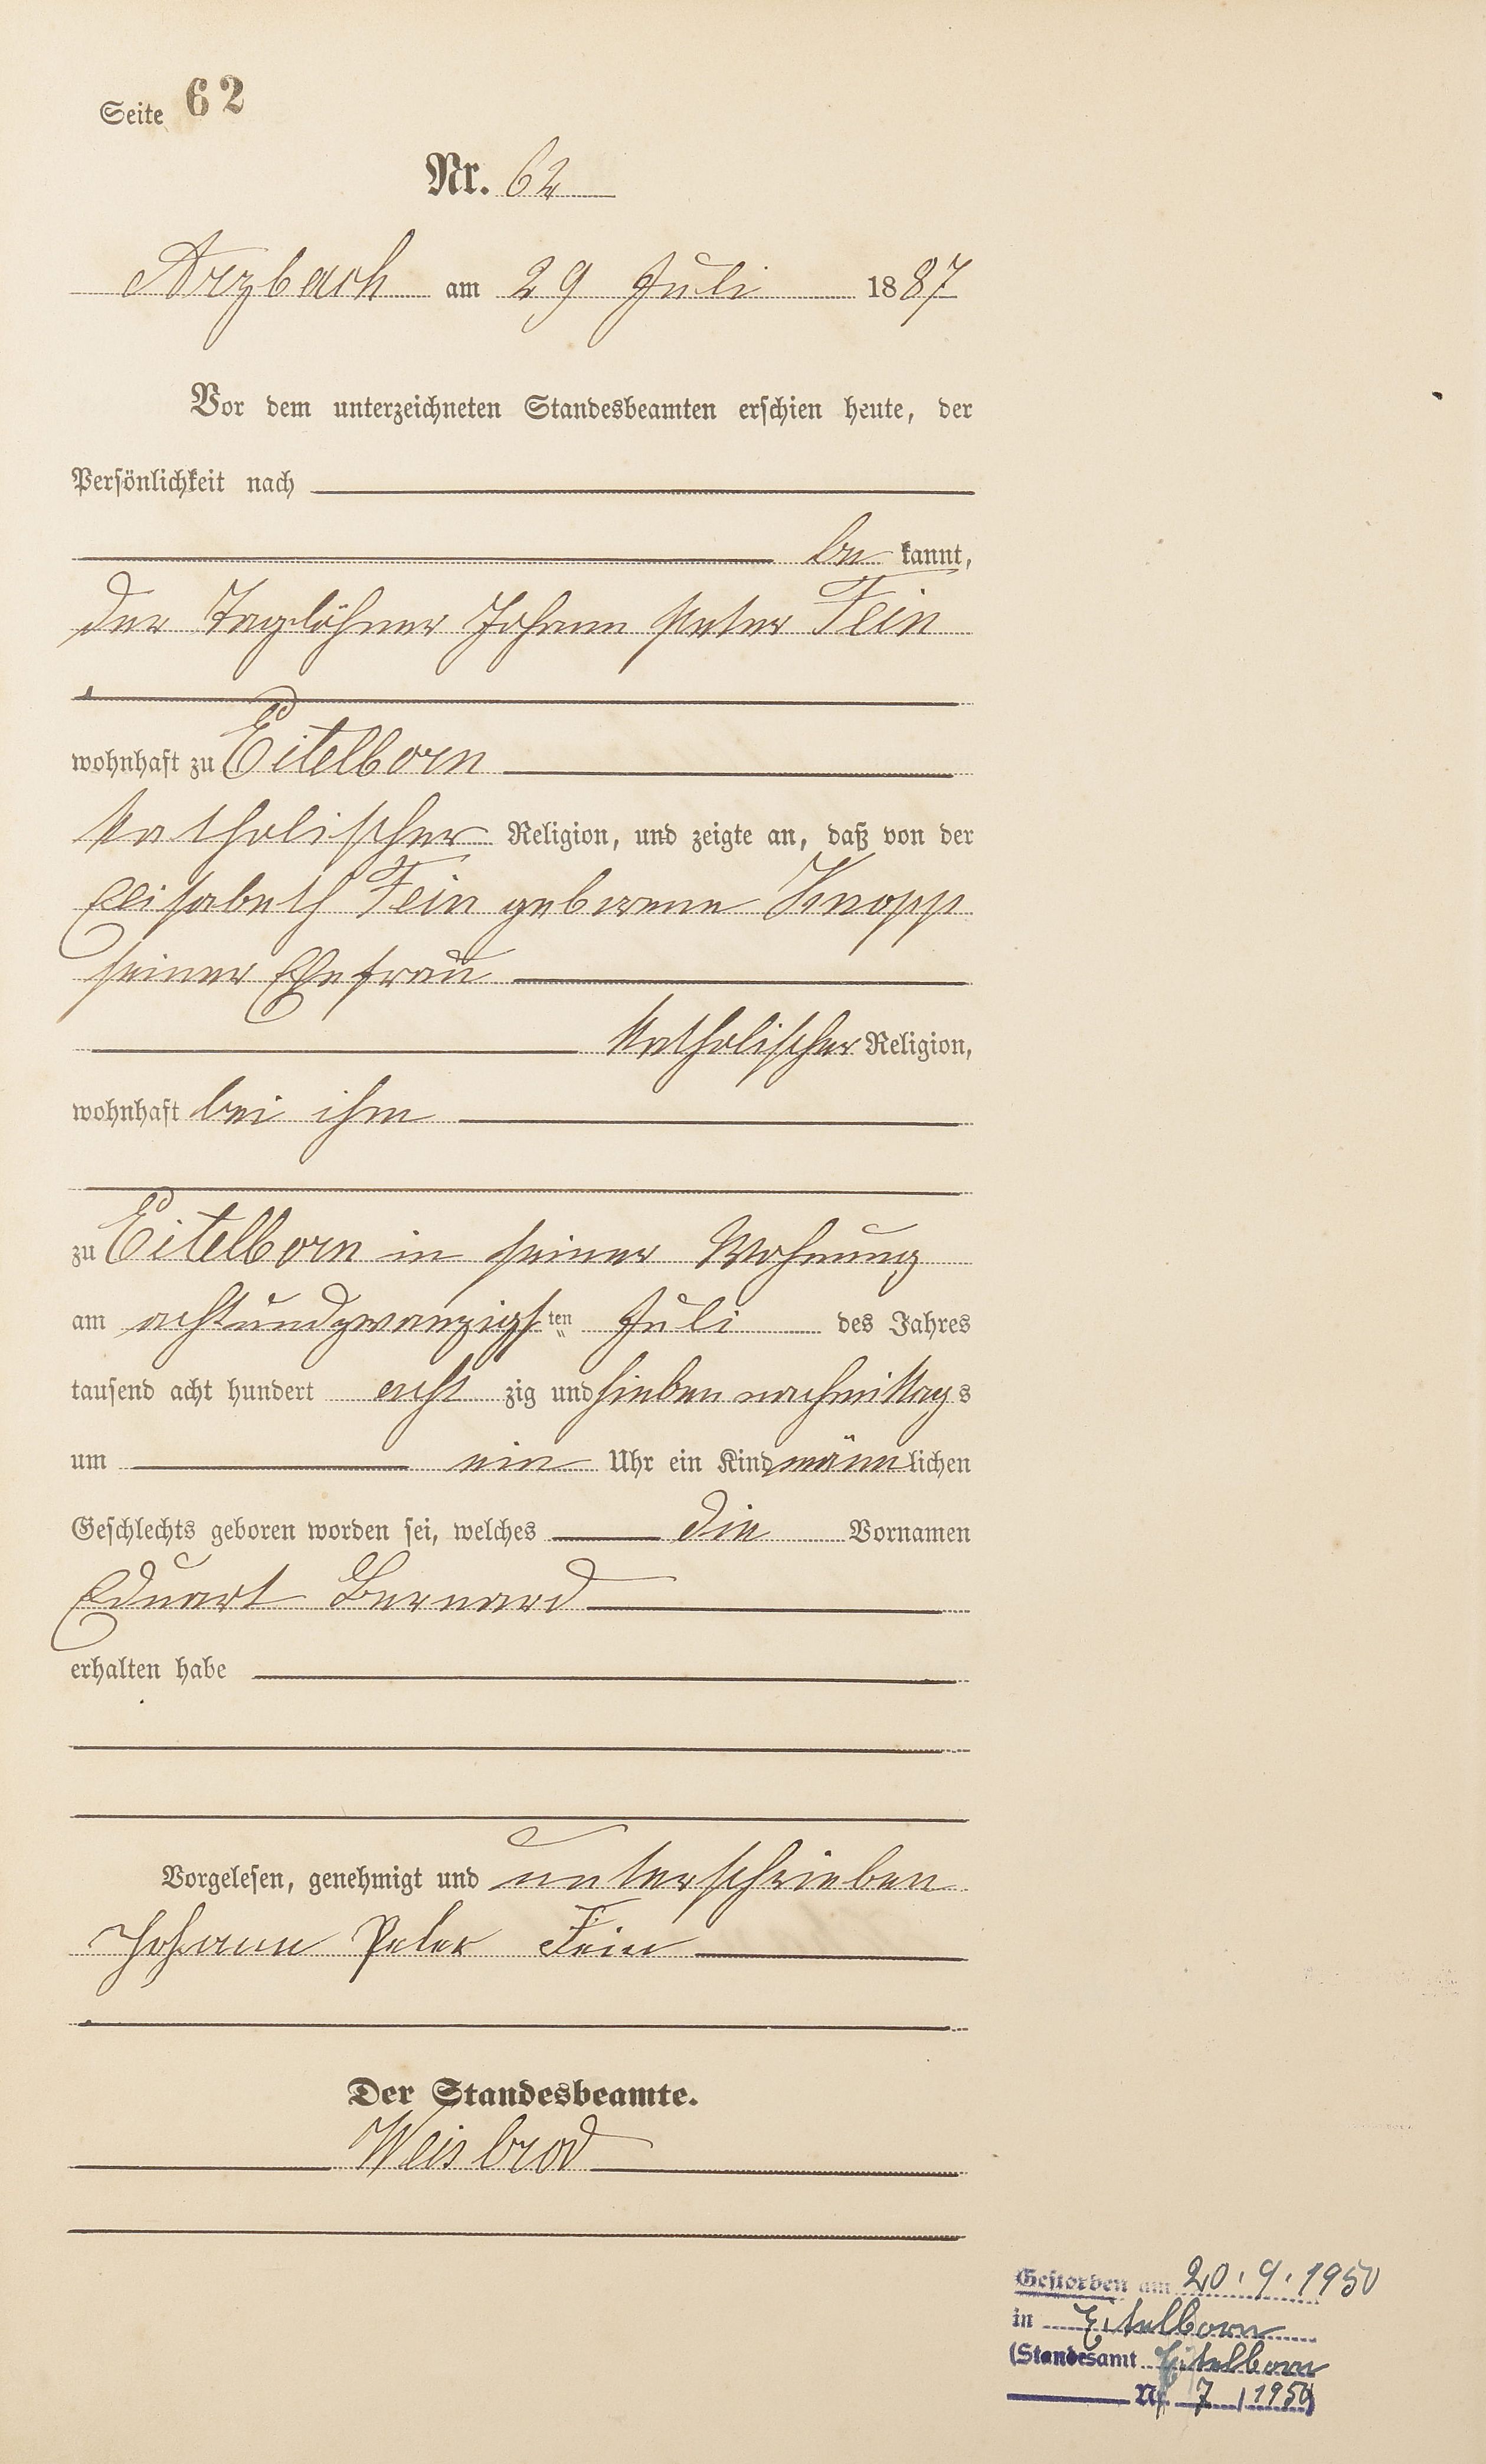 Seite 62
Nr. 62
Arzbach am 29 Juli 1887
Vor dem unterzeichneten Standesbeamten erschien heute, der
Persönlichkeit nach
be kannt,
der Taglöhner Johann Peter Fein
wohnhaft zu Eitelborn
katholischer Religion, und zeigte an, daß von der
Elisabeth Fein geborene Knopp
seiner Ehefrau
katholischer Religion,
wohnhaft bei ihm
zu Eitelborn in seiner Wohnung
am achtundzwanzigsten Juli des Jahres
tausend acht hundert acht zig und sieben nachmittags
um ein Uhr ein Kind männlichen
Geschlechts geboren worden sei, welches die Vornamen
Eduart Bernard
erhalten habe
Vorgelesen, genehmigt und unterschrieben
Johann Peter Fein
Der Standesbeamte.
Weisbrod
Gestorben am 20.9.1950
in Eitelborn
(Standesamt Eitelborn
Nr. 7 / 1950)